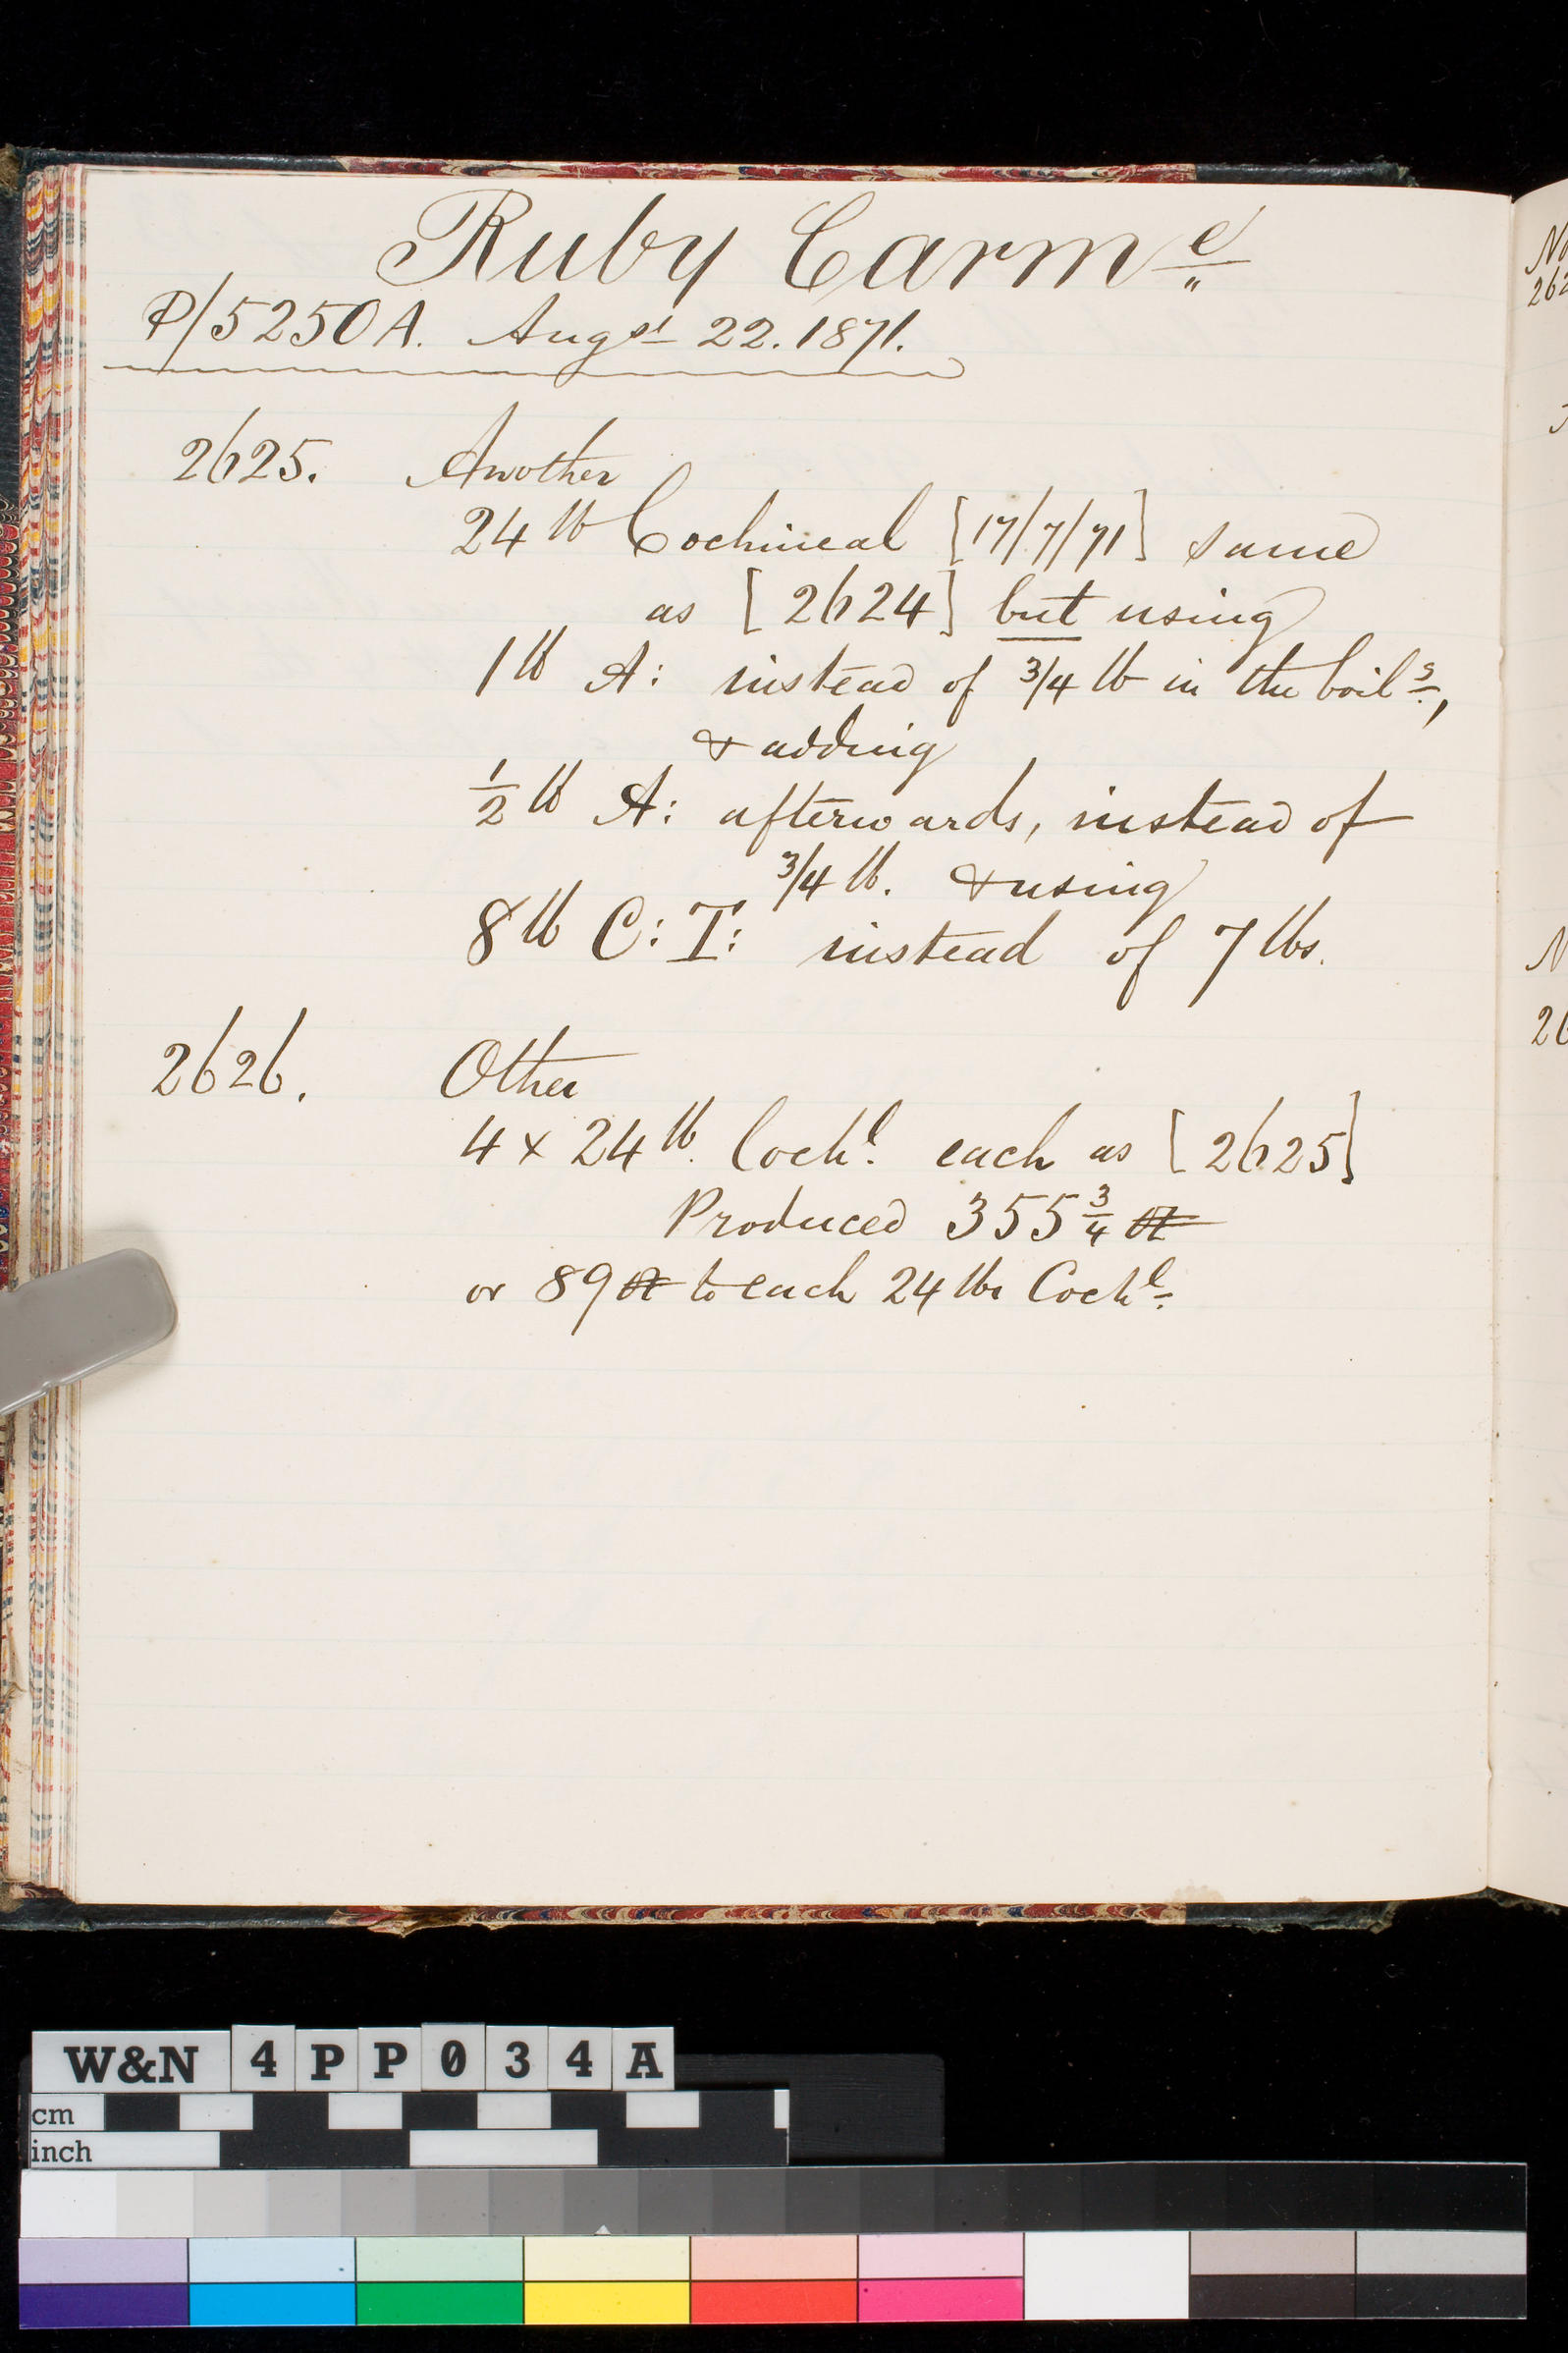 Ruby Carmᵉ
P/5250A. Augst 22. 1871.
2625. Another
24 lb Cochineal [17/7/71] same
as [2624] but using
1 lb A: instead of 3/4 lb in the boilˢ,
& adding
1/2 lb A: afterwards, instead of
3/4 lb. & using
8 lb C: T: instead of 7 lbs.
2626. Other
4 x 24 lb. Cochˡ. each as [2625]
Produced 355 3/4
or 89 to each 24 lbs Cochˡ.
No
262
N
26
W&N 4PP034A
cm
inch